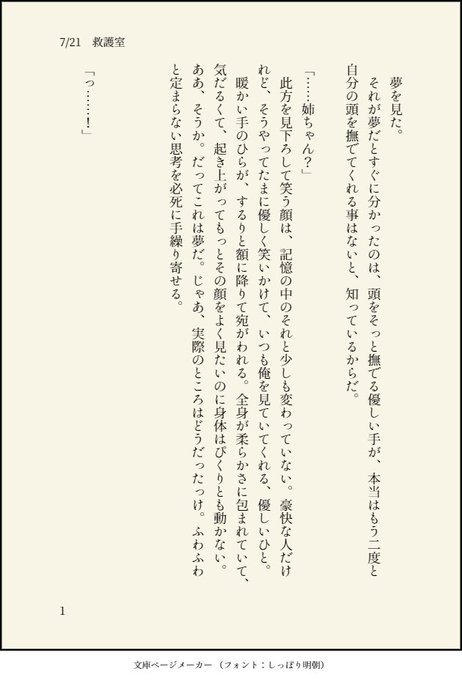 7/21　救護室
　夢を見た。
　それが夢だとすぐに分かったのは、頭をそっと撫でる優しい手が、本当はもう二度と
自分の頭を撫でてくれる事はないと、知っているからだ。
「……姉ちゃん？」
　此方を見下ろして笑う顔は、記憶の中のそれと少しも変わっていない。豪快な人だけ
れど、そうやってたまに優しく笑いかけて、いつも俺を見ていてくれる、優しいひと。
　暖かい手のひらが、するりと額に降りて宛がわれる。全身が柔らかさに包まれていて、
気だるくて、起き上がってもっとその顔をよく見たいのに身体はぴくりとも動かない。
ああ、そうか。だってこれは夢だ。じゃあ、実際のところはどうだったっけ。ふわふわ
と定まらない思考を必死に手繰り寄せる。
「っ……！」
1
文庫ページメーカー（フォント：しっぽり明朝）